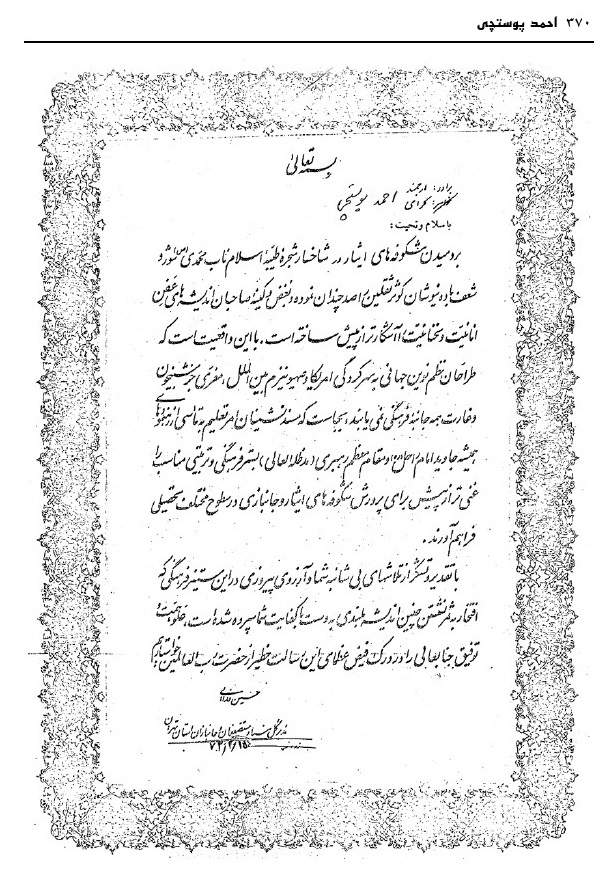 ۳۷۰ احمد پوستچی
بسمه تعالی
برادر: ارجمند
خواهر: گرامی احمد پوستچی
باسلام و تحیت:
بردمیدن شکوفه‌های ایثار در شاخسار شجره طیبه اسلام ناب محمدی (ص) شور و
شعف باده نوشان کوثر ثقلین را صد چندان نموده و بغض و کینه صاحبان اندیشه‌های عفن
انانیت و نفسانیت را آشکارتر از پیش ساخته است. با این واقعیت است که
طراحان نظم نوین جهانی به سرکردگی امریکا و صهیونیزم بین الملل، مفری جز شبیخون
و غارت همه جانبه فرهنگی نمی یابند، اینجاست که مسندنشینان امر تعلیم به تأسی از رهنمودهای
همیشه جاوید امام راحل (ره) و مقام معظم رهبری (مدظله العالی) بستر فرهنگی و تربیتی مناسب را
غنی تر از پیش برای پرورش شکوفه‌های ایثار و جانبازی در سطوح مختلف تحصیلی
فراهم آورند.
با تقدیر و تشکر از تلاشهای بی شائبه شما و آرزوی پیروزی در این ستیز فرهنگی که
افتخار به ثمر نشستن چنین اندیشه بلندی به دست با کفایت شما سپرده شده است،
توفیق جنابعالی را در درک فیض عظمای این رسالت خطیر از حضرت رب العالمین خواستاریم
حسین
مدیرکل بنیاد مستضعفان و جانبازان استان تهران
۷۲/۲/۱۵